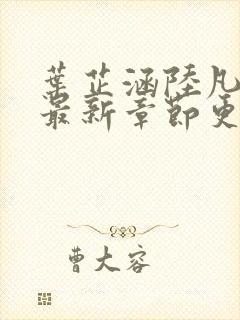 葉芷涵陸凡
最新章節更
曹大容